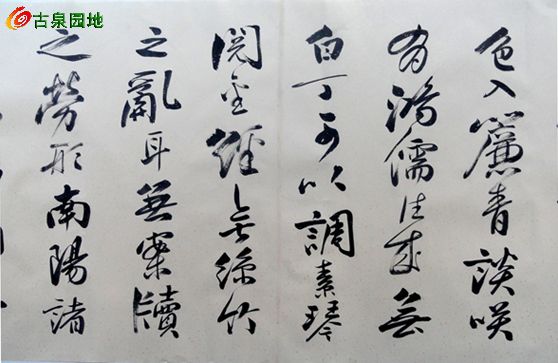 古泉园地
色入簾青談咲
有鴻儒往来無
白丁可以調素琴
閱金經無絲竹
之亂耳無案牘
之勞形南陽諸